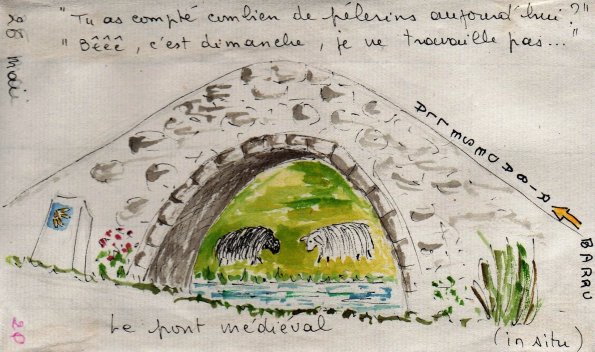 "Tu as compté combien de pélerins aujourd'hui?"
"Bêêê, c'est dimanche, je ne travaille pas..."
Mai
BARRU
20
Le pont médieval
(in situ)